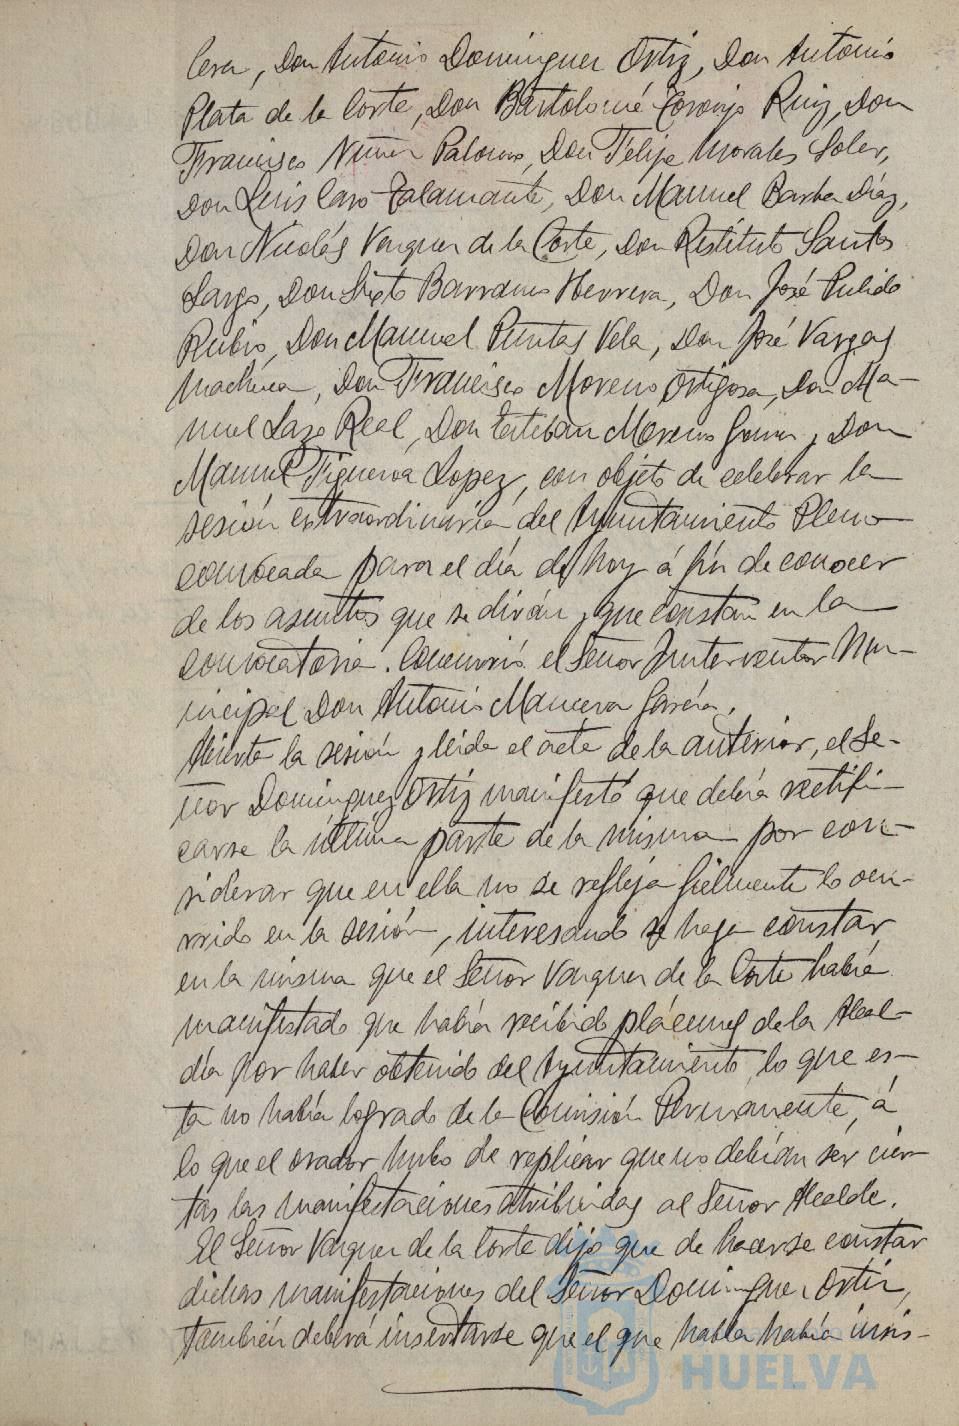 Cera, Don Antonio Dominguez Ortiz, Don Antonio
Plata de la Corte, Don Bartolomé Toronjo Ruiz, Don
Francisco Nuñez Palomo, Don Felipe Morales Soler,
Don Luis Caro Talamante, Don Manuel Barba Díaz,
Don Nicolás Vazquez de la Corte, Don Restituto Santos
Largo, Don Sixto Barranco Herrera, Don José Pulido
Rubio, Don Manuel Puntas Vela, Don José Vargas
Machuca, Don Francisco Moreno Ortigosa, Don Ma-
nuel Lazo Real, Don Esteban Moreno y Don
Manuel Figueroa Lopez, con objeto de celebrar la
sesión extraordinaria del Ayuntamiento Pleno
convocada para el día de hoy á fin de conocer
de los asuntos que se dirán y que constan en la
convocatoria. Concurrió el Señor Interventor Mu-
nicipal Don Antonio Mancera García.
Abierta la sesión y leida el acta de la anterior, el Se-
ñor Dominguez Ortiz manifestó que debía rectifi-
carse la última parte de la misma por con-
siderar que en ella no se refleja fielmente lo ocu-
rrido en la sesión, interesando se haga constar
en la misma que el Señor Vazquez de la Corte había
manifestado que había recibido plácemes de la Alcal-
día por haber obtenido del Ayuntamiento lo que es-
ta no había logrado de la Comisión Permanente, á
lo que el orador hubo de replicar que no debían ser cier-
tas las manifestaciones atribuidas al Señor Alcalde.
El Señor Vazquez de la Corte dijo que de hacerse constar
dichas manifestaciones del Señor Dominguez Ortiz,
también deberá insertarse que el que habla había insis-
HUELVA